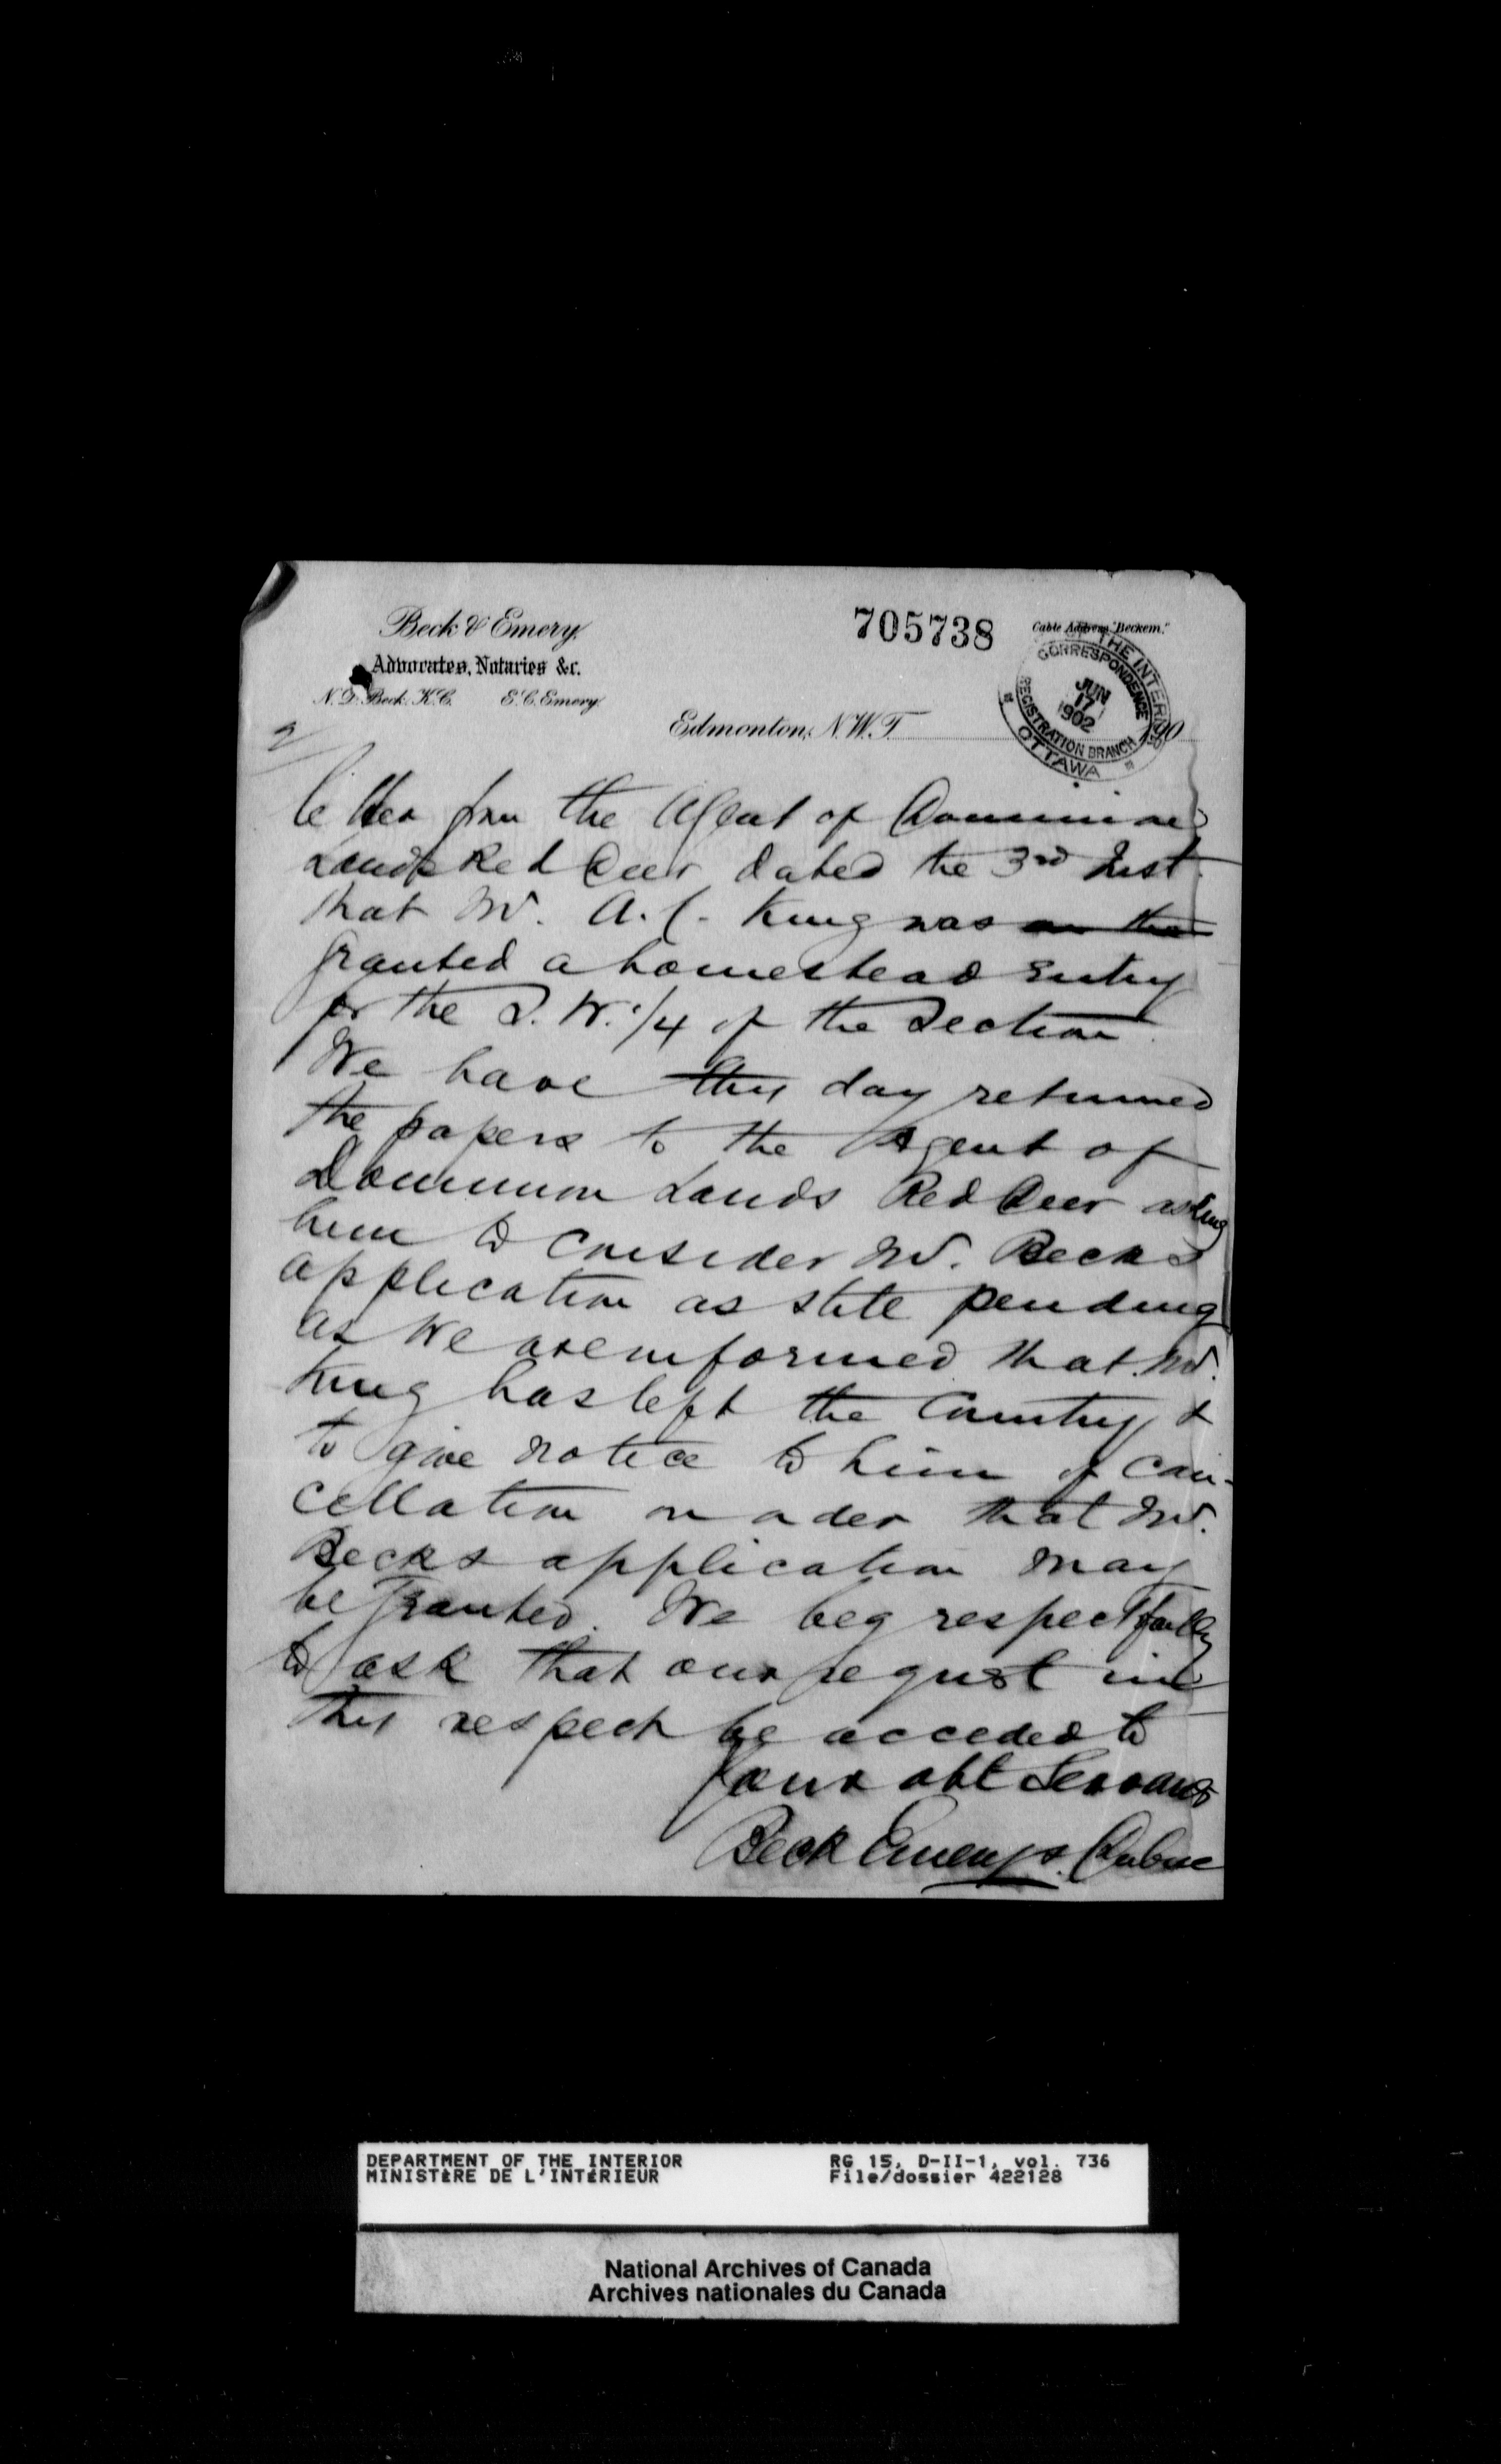 Beck & Emery.
Advocates, Notaries &c.
N. D. Beck. K.C. E. C. Emery.
705738
Cable Address, "Beckem."
THE INTERIOR
CORRESPONDENCE
JUN
17
1902
REGISTRATION BRANCH
OTTAWA
Edmonton, N.W.T. 190
2
letter from the Agent of Dominion
Lands Red Deer dated the 3rd Inst.
that Mr. A. C. King was on the
granted a homestead entry
for the S. W. 1/4 of the Section.
We have this day returned
the papers to the Agent of
Dominion Lands Red Deer asking
him to consider Mr. Becks
application as still pending
as we are informed that Mr.
King has left the Country &
to give notice to him of can-
cellation in order that Mr.
Becks application may
be granted. We beg respectfully
to ask that our request in
this respect be acceded to
Your obt Servants
Beck Emery &
DEPARTMENT OF THE INTERIOR
MINISTÈRE DE L'INTÉRIEUR
RG 15, D-II-1, vol. 736
File/dossier 422128
National Archives of Canada
Archives nationales du Canada